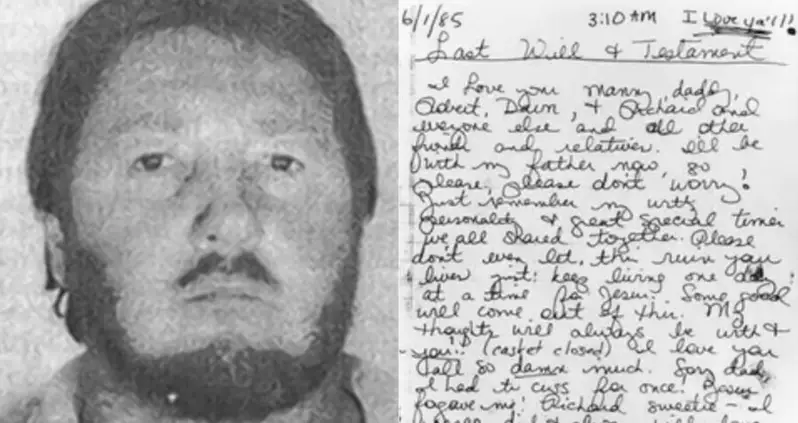 6/1/85 3:10 AM I Love ya'll!
Last Will & Testament
I Love you mommy, daddy,
Robert, Dawn, & Richard and
everyone else and all other
friends and relatives. I'll be
with my father now, so
please, please don't worry!
Just remember my witty
personality & great special times
we all shared together. Please
don't ever let this ruin your
lives just keep living one day
at a time for Jesus. Some good
will come out of this. My
thoughts will always be with &
you!! (casket closed) I love you
all so damn much. Sorry dad,
I had to cuss for once! Jesus
forgave me! Richard sweetie - I